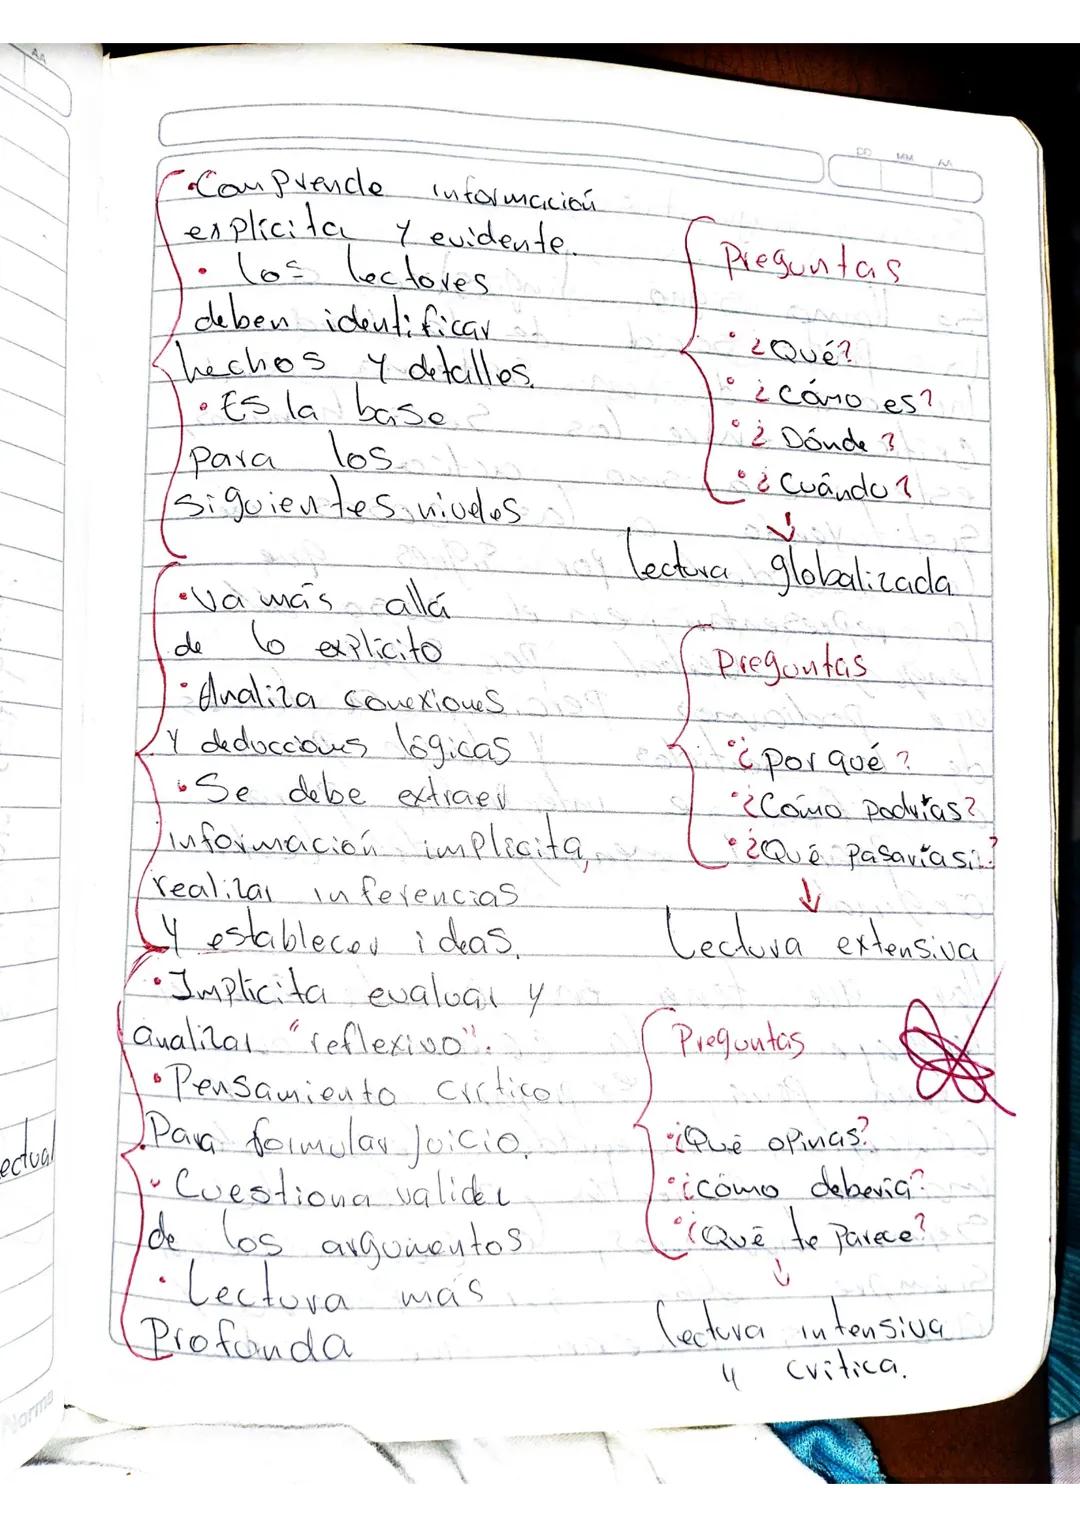 • Comprende información
explícita y evidente.
• los lectores
deben identificar
hechos y detalles.
• Es la base
para los
siguientes niveles
Preguntas
• ¿Qué?
• ¿cómo es?
• ¿Dónde?
• ¿Cuándo?
↓
lectura globalizada
• Va más allá
de lo explícito
• Analiza conexiones
y deducciones lógicas
• Se debe extraer
información implícita,
realizar inferencias
y establecer ideas.
Preguntas
• ¿por qué?
• ¿Cómo podrías?
• ¿Qué pasaría si..?
↓
Lectura extensiva
• Implicita evaluar y
analizar "reflexivo".
• Pensamiento crítico
Para formular juicio.
• Cuestiona validez
de los argumentos
• Lectura más
Profunda
Preguntas
• ¿Qué opinas?
• ¿cómo debería?
• ¿Qué te parece?
↓
lectura intensiva
y crítica.
ectual
Norma
DD MM AA
AA